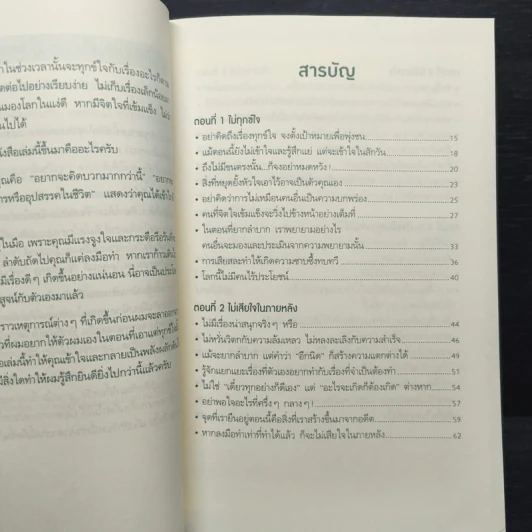 าในช่วงเวลานั้นจะทุกข์ใจกับเรื่องอะไรก็ตาม
ตต่อไปอย่างเรียบง่าย ไม่เก็บเรื่องเล็กน้อย
มองโลกในแง่ดี หากมีจิตใจที่เข้มแข็ง
นไปได้
งสือเล่มนี้ขึ้นมาคืออะไรครับ
ุณคือ "อยากจะคิดบวกมากกว่านี้"
ารหรืออุปสรรคในชีวิต" แสดงว่าคุณได้เข้า
ในมือ เพราะคุณมีแรงจูงใจและกระตือรือร้น
ลำดับถัดไปคุณก็แค่ลงมือทำ หากเราก้าว
มีเรื่องดีๆ เกิดขึ้นอย่างแน่นอน นี่อาจเป็น
สูจน์กับตัวเองมาแล้ว
ราวเหตุการณ์ต่างๆ ที่เกิดขึ้นก่อนผมจะลาออก
ที่ผมอยากให้ตัวผมเองในตอนที่เอาแต่ทุกข์ใจ
อเล่มนี้ทำให้คุณเข้าใจและกลายเป็นพลังผลักดัน
มีสิ่งใดทำให้ผมรู้สึกยินดียิ่งไปกว่านี้แล้วครับ
สารบัญ
ตอนที่ 1 ไม่ทุกข์ใจ
• อย่าคิดถึงเรื่องทุกข์ใจ จงตั้งเป้าหมายเพื่อพุ่งชน 15
• แม้ตอนนี้ยังไม่เข้าใจและรู้สึกแย่ แต่จะเข้าใจในสักวัน 18
• ถึงไม่มีขนตรงนั้น...ก็จงอย่าหมดหวัง! 20
• สิ่งที่หยุดยั้งหัวใจเอาไว้อาจเป็นตัวคุณเอง 23
• อย่าคิดว่าการไม่เหมือนคนอื่นเป็นความบกพร่อง 25
• คนที่จิตใจเข้มแข็งจะวิ่งไปข้างหน้าอย่างเต็มที่ 27
• ในตอนที่ยากลำบาก เราพยายามอย่างไร
คนอื่นจะมองและประเมินจากความพยายามนั้น 33
• การเสียสละทำให้เกิดความซาบซึ้งทบทวี 36
• โลกนี้ไม่มีคนไร้ประโยชน์ 40
ตอนที่ 2 ไม่เสียใจในภายหลัง
• ไม่มีเรื่องน่าสนุกจริงๆ หรือ 44
• ไม่หวั่นวิตกกับความล้มเหลว ไม่หลงละเลิงกับความสำเร็จ 46
• แม้จะยากลำบาก แต่คำว่า "อีกนิด" ก็สร้างความแตกต่างได้ 49
• รู้จักแยกแยะเรื่องที่ตัวเองอยากทำกับเรื่องที่จำเป็นต้องทำ 52
• ไม่ใช่ "เดี๋ยวทุกอย่างก็ดีเอง" แต่ "อะไรจะเกิดก็ต้องเกิด" ต่างหาก 54
• อย่าพอใจอะไรที่ครึ่งๆ กลางๆ! 57
• จุดที่เรายืนอยู่ตอนนี้คือสิ่งที่เราสร้างขึ้นมาจากอดีต 59
• หากลงมือทำเท่าที่ทำได้แล้ว ก็จะไม่เสียใจในภายหลัง 62